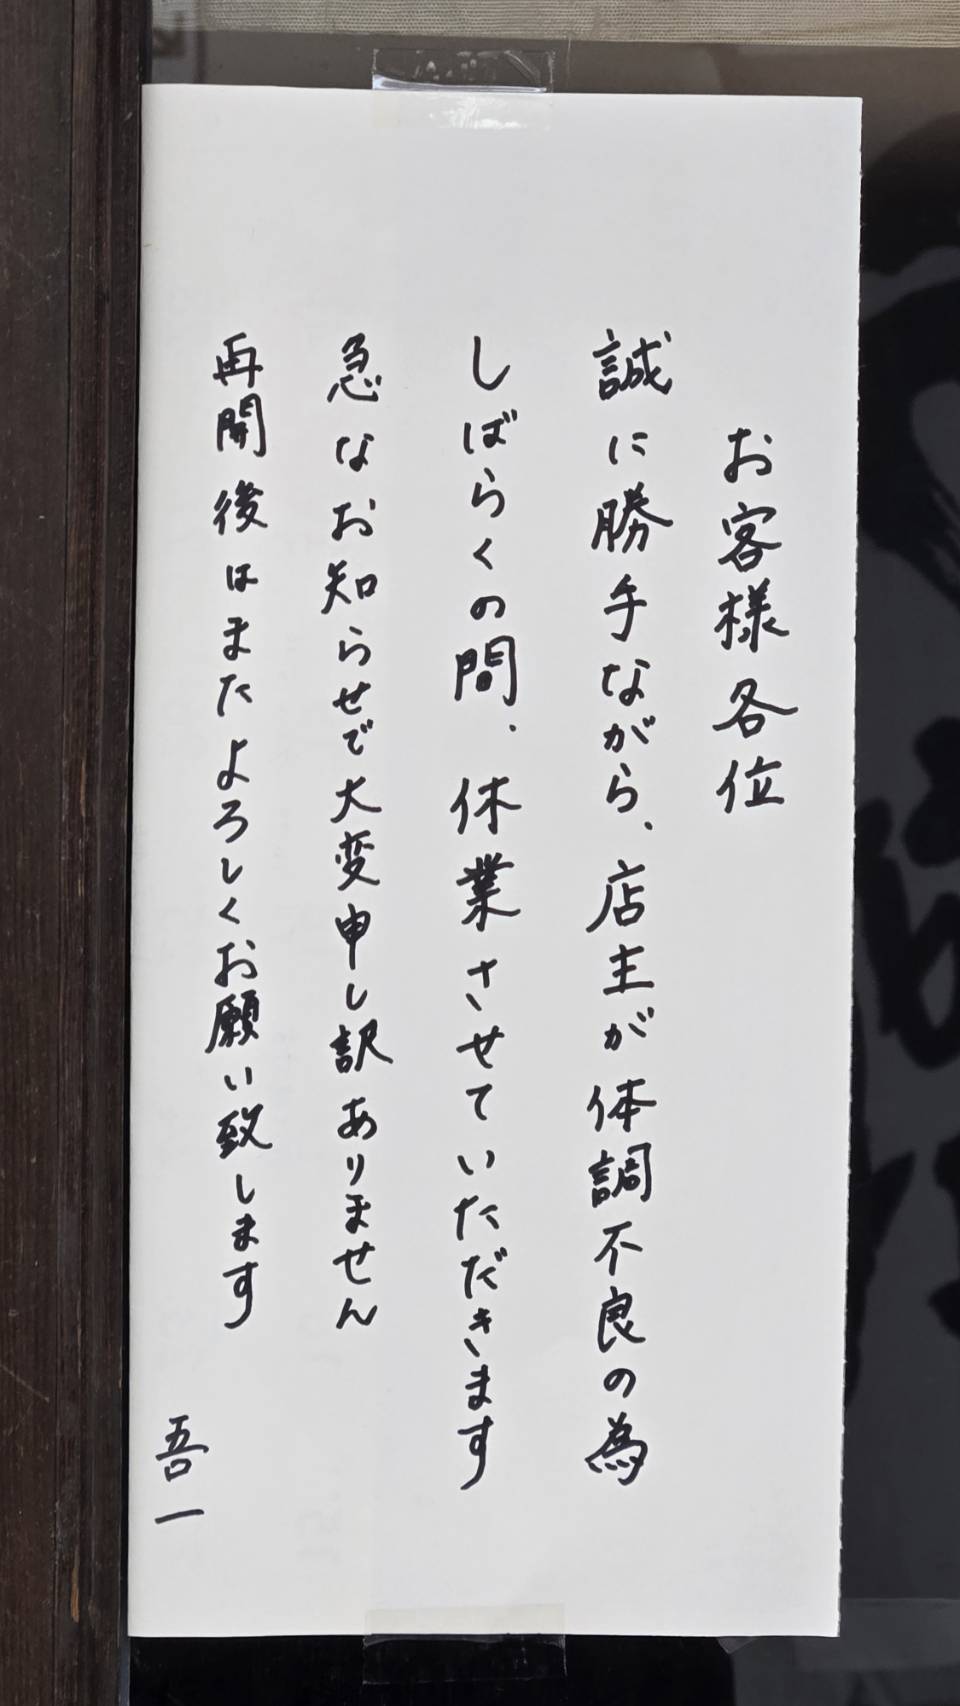 お客様各位
誠に勝手ながら、店主が体調不良の為
しばらくの間、休業させていただきます
急なお知らせで大変申し訳ありません
再開後はまたよろしくお願い致します
吾一